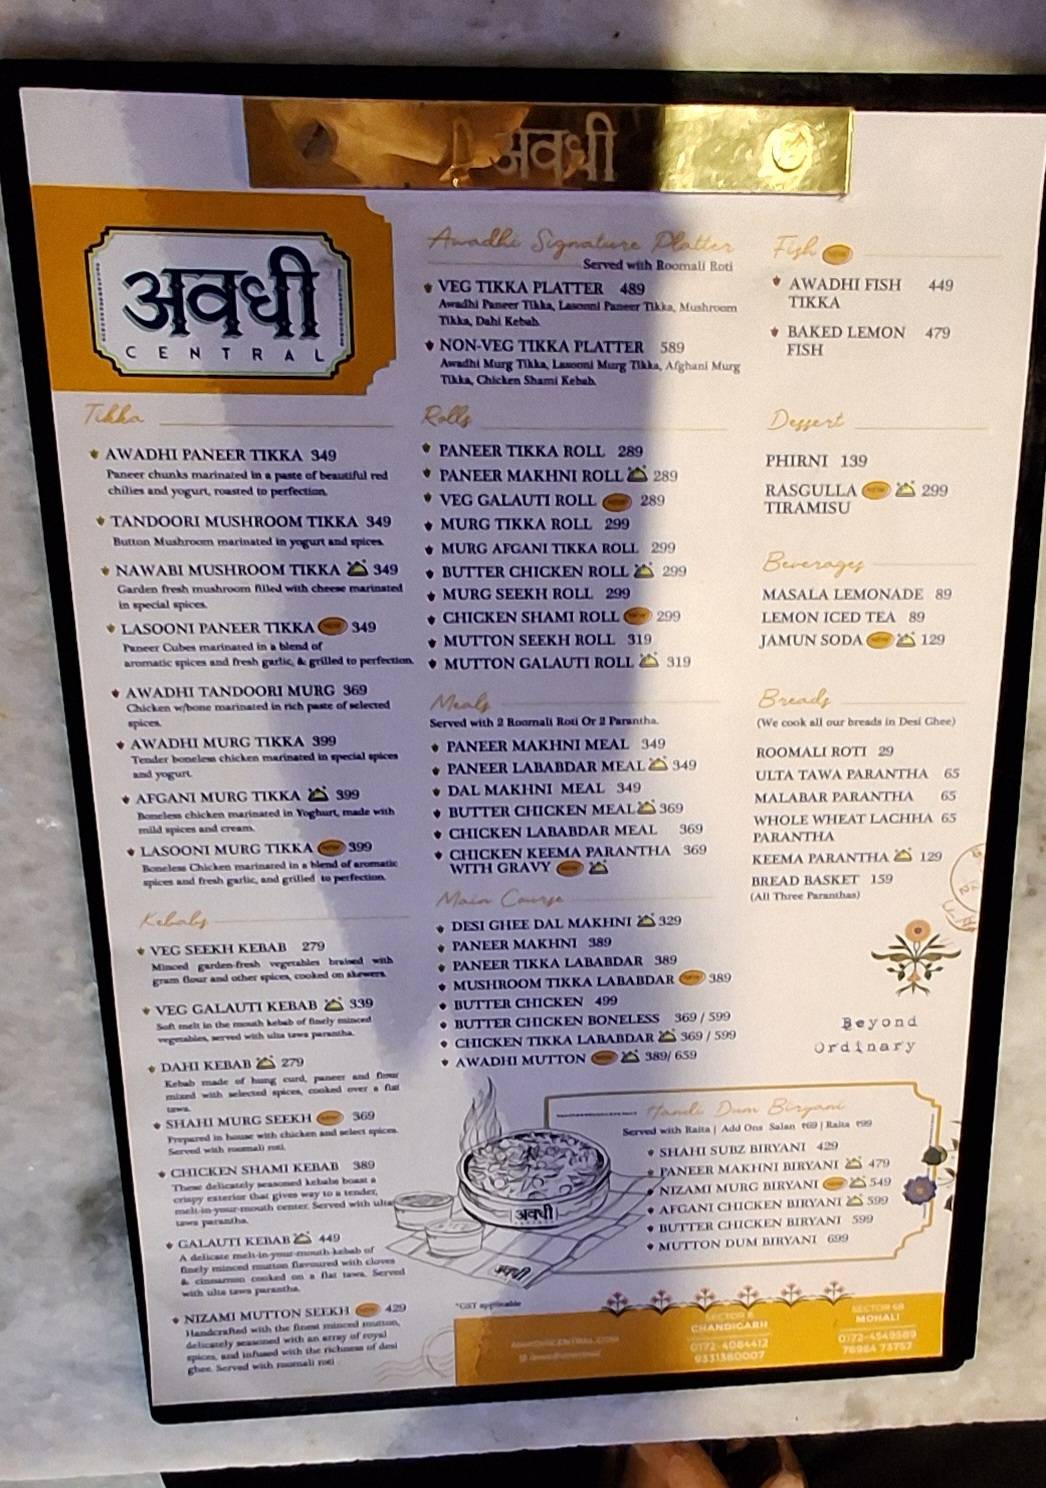 अवधी
अवधी
CENTRAL
Awadhi Signature Platter
Served with Roomali Roti
VEG TIKKA PLATTER 489
Awadhi Paneer Tikka, Lasooni Paneer Tikka, Mushroom
Tikka, Dahi Kebab.
NON-VEG TIKKA PLATTER 589
Awadhi Murg Tikka, Lasooni Murg Tikka, Afghani Murg
Tikka, Chicken Shami Kebab.
Fish NEW
AWADHI FISH 449
TIKKA
BAKED LEMON 479
FISH
Tikka
AWADHI PANEER TIKKA 349
Paneer chunks marinated in a paste of beautiful red
chilies and yogurt, roasted to perfection.
TANDOORI MUSHROOM TIKKA 349
Button Mushroom marinated in yogurt and spices.
NAWABI MUSHROOM TIKKA 349
Garden fresh mushroom filled with cheese marinated
in special spices.
LASOONI PANEER TIKKA NEW 349
Paneer Cubes marinated in a blend of
aromatic spices and fresh garlic, & grilled to perfection.
AWADHI TANDOORI MURG 369
Chicken w/bone marinated in rich paste of selected
spices.
AWADHI MURG TIKKA 399
Tender boneless chicken marinated in special spices
and yogurt.
AFGANI MURG TIKKA 399
Boneless chicken marinated in Yoghurt, made with
mild spices and cream.
LASOONI MURG TIKKA NEW 399
Boneless Chicken marinated in a blend of aromatic
spices and fresh garlic, and grilled to perfection.
Kebabs
VEG SEEKH KEBAB 279
Minced garden-fresh vegetables braised with
gram flour and other spices, cooked on skewers.
VEG GALAUTI KEBAB 339
Soft melt in the mouth kebab of finely minced
vegetables, served with ulta tawa parantha.
DAHI KEBAB 279
Kebab made of hung curd, paneer and flour
mixed with selected spices, cooked over a flat
tawa.
SHAHI MURG SEEKH NEW 369
Prepared in house with chicken and select spices.
Served with roomali roti.
CHICKEN SHAMI KEBAB 389
These delicately seasoned kebabs boast a
crispy exterior that gives way to a tender,
melt-in-your-mouth center. Served with ulta
tawa parantha.
GALAUTI KEBAB 449
A delicate melt-in-your-mouth-kebab of
finely minced mutton flavoured with cloves
& cinnamon cooked on a flat tawa. Served
with ulta tawa parantha.
NIZAMI MUTTON SEEKH NEW 429
Handcrafted with the finest minced mutton,
delicately seasoned with an array of royal
spices, and infused with the richness of desi
ghee. Served with roomali roti
Rolls
PANEER TIKKA ROLL 289
PANEER MAKHNI ROLL 289
VEG GALAUTI ROLL NEW 289
MURG TIKKA ROLL 299
MURG AFGANI TIKKA ROLL 299
BUTTER CHICKEN ROLL 299
MURG SEEKH ROLL 299
CHICKEN SHAMI ROLL NEW 299
MUTTON SEEKH ROLL 319
MUTTON GALAUTI ROLL 319
Meals
Served with 2 Roomali Roti Or 2 Parantha.
PANEER MAKHNI MEAL 349
PANEER LABABDAR MEAL 349
DAL MAKHNI MEAL 349
BUTTER CHICKEN MEAL 369
CHICKEN LABABDAR MEAL 369
CHICKEN KEEMA PARANTHA 369
WITH GRAVY NEW
Main Course
DESI GHEE DAL MAKHNI 329
PANEER MAKHNI 389
PANEER TIKKA LABABDAR 389
MUSHROOM TIKKA LABABDAR NEW 389
BUTTER CHICKEN 499
BUTTER CHICKEN BONELESS 369 / 599
CHICKEN TIKKA LABABDAR 369 / 599
AWADHI MUTTON NEW 389/ 659
Dessert
PHIRNI 139
RASGULLA NEW 299
TIRAMISU
Beverages
MASALA LEMONADE 89
LEMON ICED TEA 89
JAMUN SODA NEW 129
Breads
(We cook all our breads in Desi Ghee)
ROOMALI ROTI 29
ULTA TAWA PARANTHA 65
MALABAR PARANTHA 65
WHOLE WHEAT LACHHA 65
PARANTHA
KEEMA PARANTHA 129
BREAD BASKET 159
(All Three Paranthas)
Beyond
Ordinary
Handi Dum Biryani
Served with Raita | Add Ons Salan ₹69 | Raita ₹99
SHAHI SUBZ BIRYANI 429
PANEER MAKHNI BIRYANI 479
NIZAMI MURG BIRYANI NEW 549
AFGANI CHICKEN BIRYANI 599
BUTTER CHICKEN BIRYANI 599
MUTTON DUM BIRYANI 699
अवधी
अवधी
*GST applicable
SECTOR 8
CHANDIGARH
0172-4084412
9331380007
SECTOR 68
MOHALI
0172-4549589
76964 73757